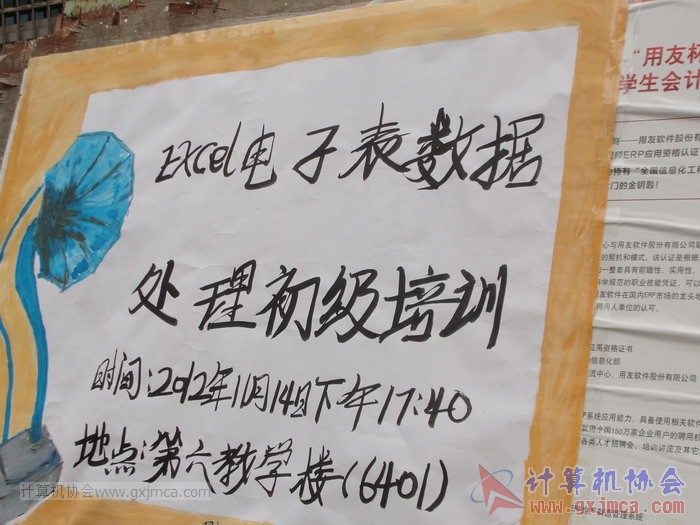 Excel电子表数据
处理初级培训
时间:2012年11月14日下午17:40
地点:第六教学楼(6401)
"用友杯
学生会计
——用友软件股份有
ERP应用资格认证
持有"全国信息化工程
门的金钥匙!
心与用友软件股份有限公司联
的契机和模式。该认证是根据
一整套具有前瞻性、实用性、
科学规范的职业技能凭证,可以
友软件在国内ERP市场的龙头
得用人单位的认可。
应用资格证书
信息化部
流中心、用友软件股份有限公司
P系统应用能力,具备使用相关软件
赢得全国150万家企业用户的聘用机
各类人才招聘会、培训讲座及其它
管理系统
计算机协会www.gxjmca.com
计算机协会
www.gxjmca.com